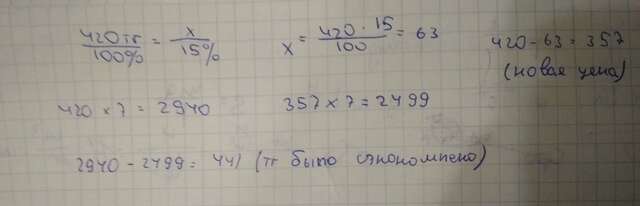 420тг/100% = x/15%    x = 420 · 15/100 = 63    420 - 63 = 357
(новая цена)
420 × 7 = 2940    357 × 7 = 2499
2940 - 2499 = 441 (тг было сэкономлено)